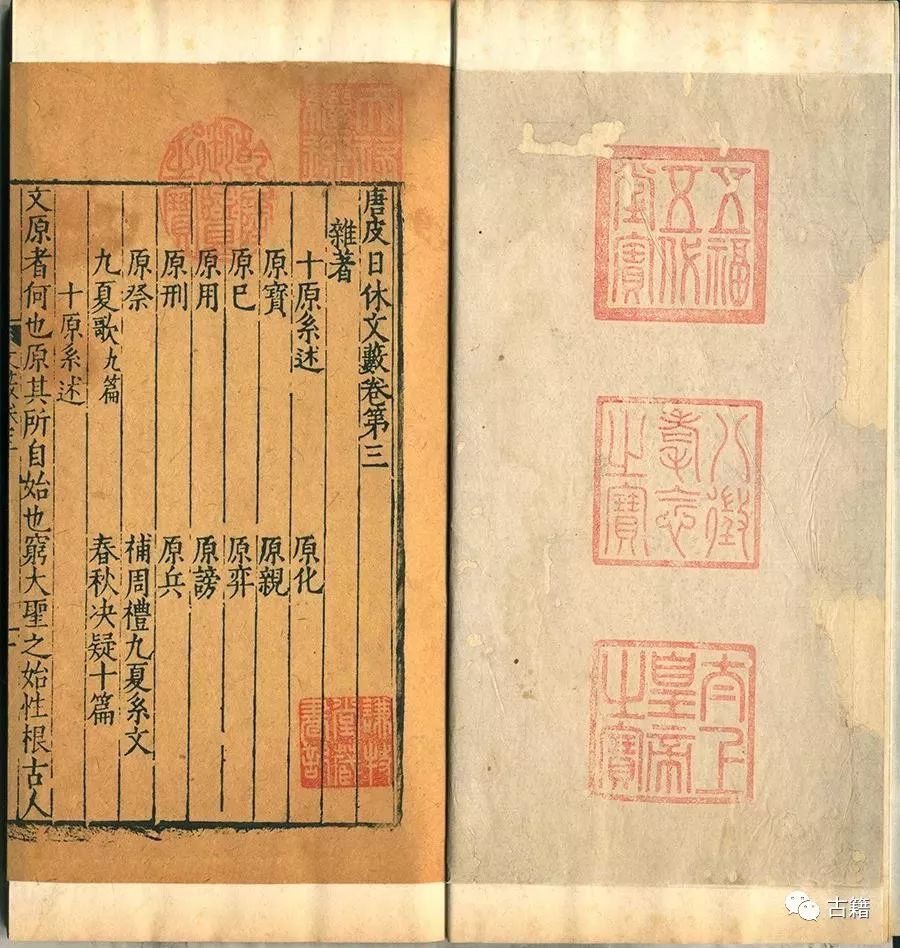 五福
五代
堂寶
八徵
耄念
之寶
太上
皇帝
之寶
天祿
繼鑑
乾隆
御覽
之寶
唐皮日休文藪卷第三
雜著
十原系述 原化
原寶 原親
原已 原弈
原用 原謗
原刑 原兵
原祭 補周禮九夏系文
九夏歌九篇 春秋决疑十篇
十原系述
文原者何也原其所自始也窮大聖之始性根古人
謙牧
堂藏
書記
古籍